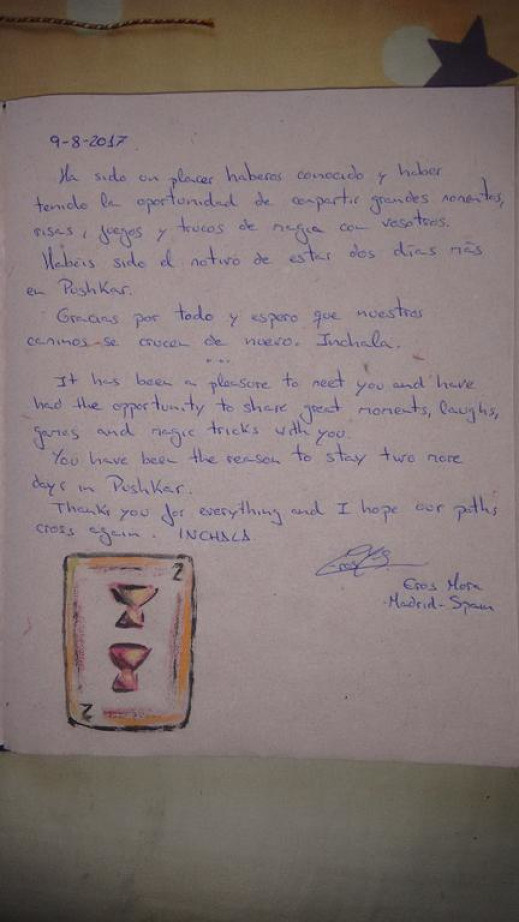 9-8-2017
Ha sido un placer haberos conocido y haber
tenido la oportunidad de compartir grandes momentos,
risas, juegos y trucos de magia con vosotros.
Habéis sido el motivo de estar dos días más
en Pushkar.
Gracias por todo y espero que nuestros
caminos se crucen de nuevo. Inchala.
...
It has been a pleasure to meet you and have
had the opportunity to share great moments, laughs,
games and magic tricks with you.
You have been the reason to stay two more
days in Pushkar.
Thanks you for everything and I hope our paths
cross again. INCHALA
Eros Mora
Madrid-Spain
2
2